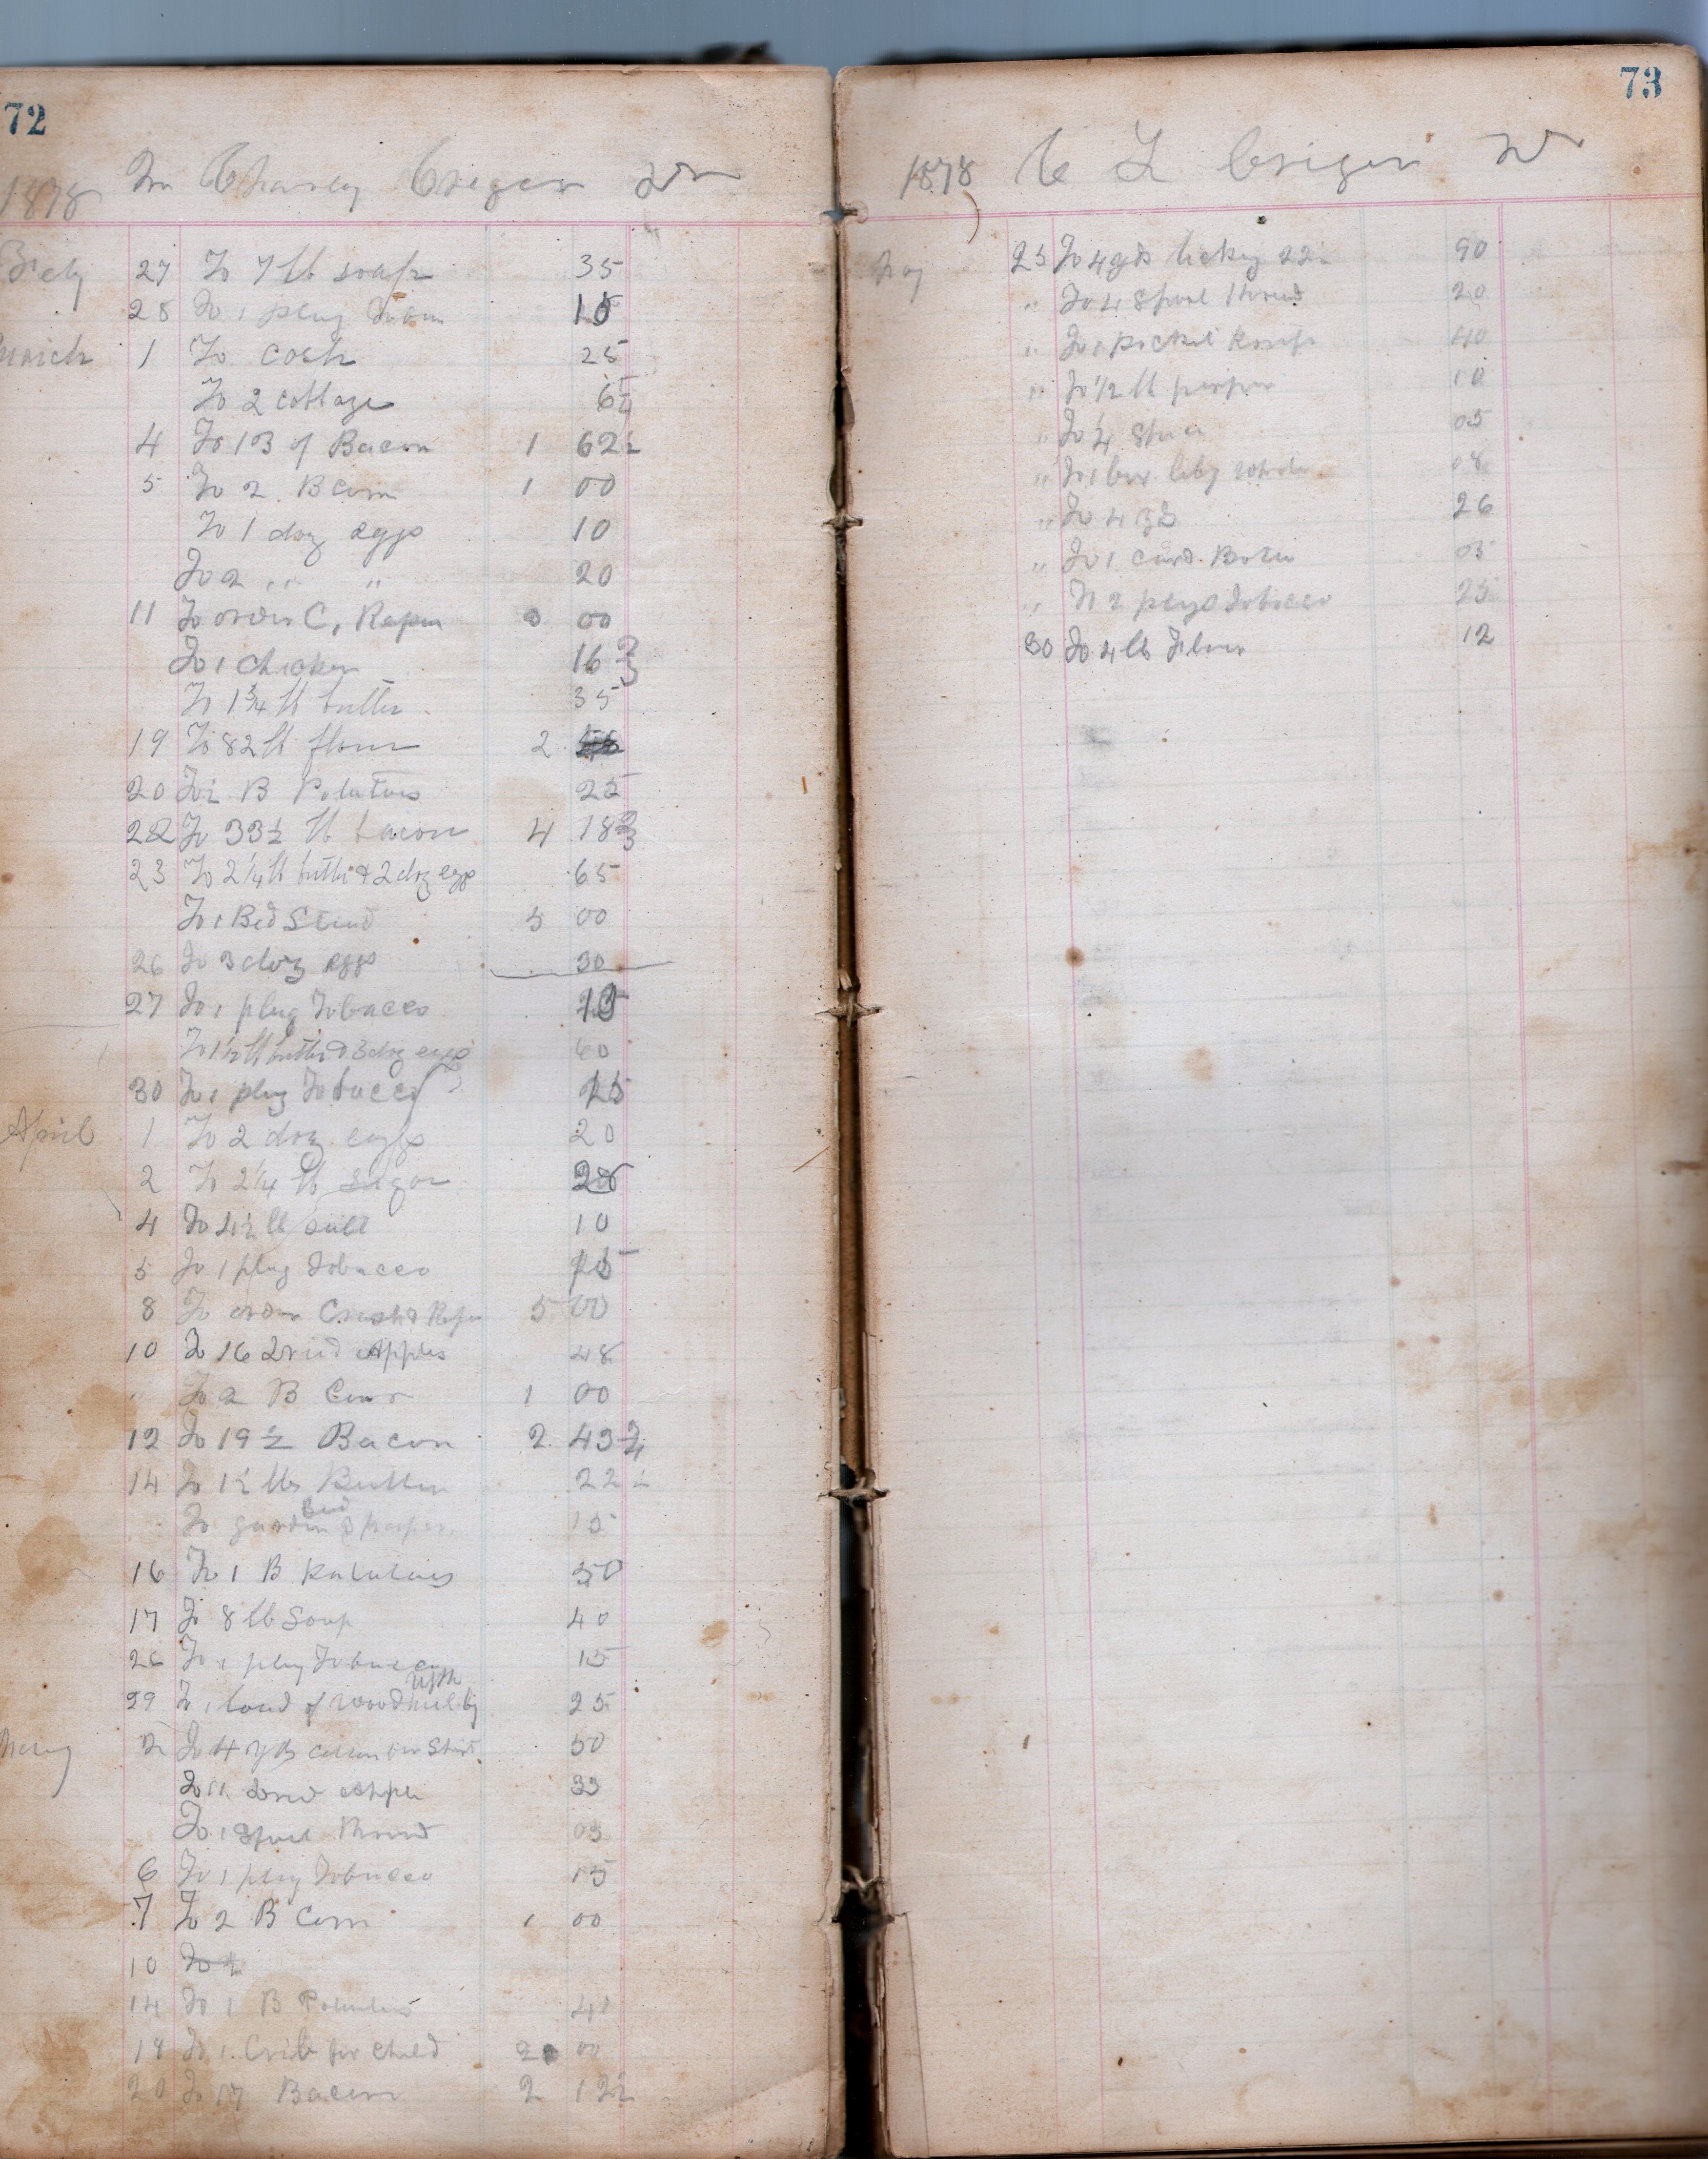 72
1878 Charley Criger Dr
27 To 7 lb soap 35
28 To 1 plug 15
March 1 To Cash 25
To 2 cottage 65
4 To 13 of Bacon 1 62½
5 To 2 B Corn 1 00
To 1 doz eggs 10
To 2 " " 20
11 To order C, 00
To 1 Chicken 16 2/3
To 1¾ lb butter 35
19 To 82 lb flour 2
20 To ½ B Potatoes 25
22 To 33½ lb bacon 4 18 2/3
23 To 2¼ lb butter & 2 doz eggs 65
To 1 Bed Stead 5 00
26 To 3 doz eggs 30
27 To 1 plug Tobacco 15
To 1½ lb butter & 3 doz eggs 60
30 To 1 plug Tobacco 15
April 1 To 2 doz eggs 20
2 To 2¼ lb Sugar
4 To 4½ lb salt 10
5 To 1 plug Tobacco 15
8 To order 5 00
10 To 16 Dried Apples 48
" To 2 B Corn 1 00
12 To 19½ Bacon 2 43¾
14 To 1½ lbs Butter 22½
To garden Seed & 15
16 To 1 B Potatoes 50
17 To 8 lb Soap 40
26 To 1 plug Tobacco 15
29 To 1 load of wood 25
May 2 To 4 yds for Shirt 50
To 11 Dried Apple 33
To 1 Spool Thread 05
6 To 1 plug Tobacco 15
7 To 2 B Corn 1 00
10 To 2
14 To 1 B Potatoes 40
18 To 1 Crib for Child 2 00
20 To 17 Bacon 2 12½
73
1878 C L Criger Dr
May 23 To 4 yds ticking 22½ 90
" To 4 Spool thread 20
" To 1 Pocket 40
" To ½ lb 10
" To ¼ 05
" To 1 box 08
" To 4 yd 26
" To 1 card 05
" To 2 plugs Tobacco 25
30 To 4 lb Flour 12